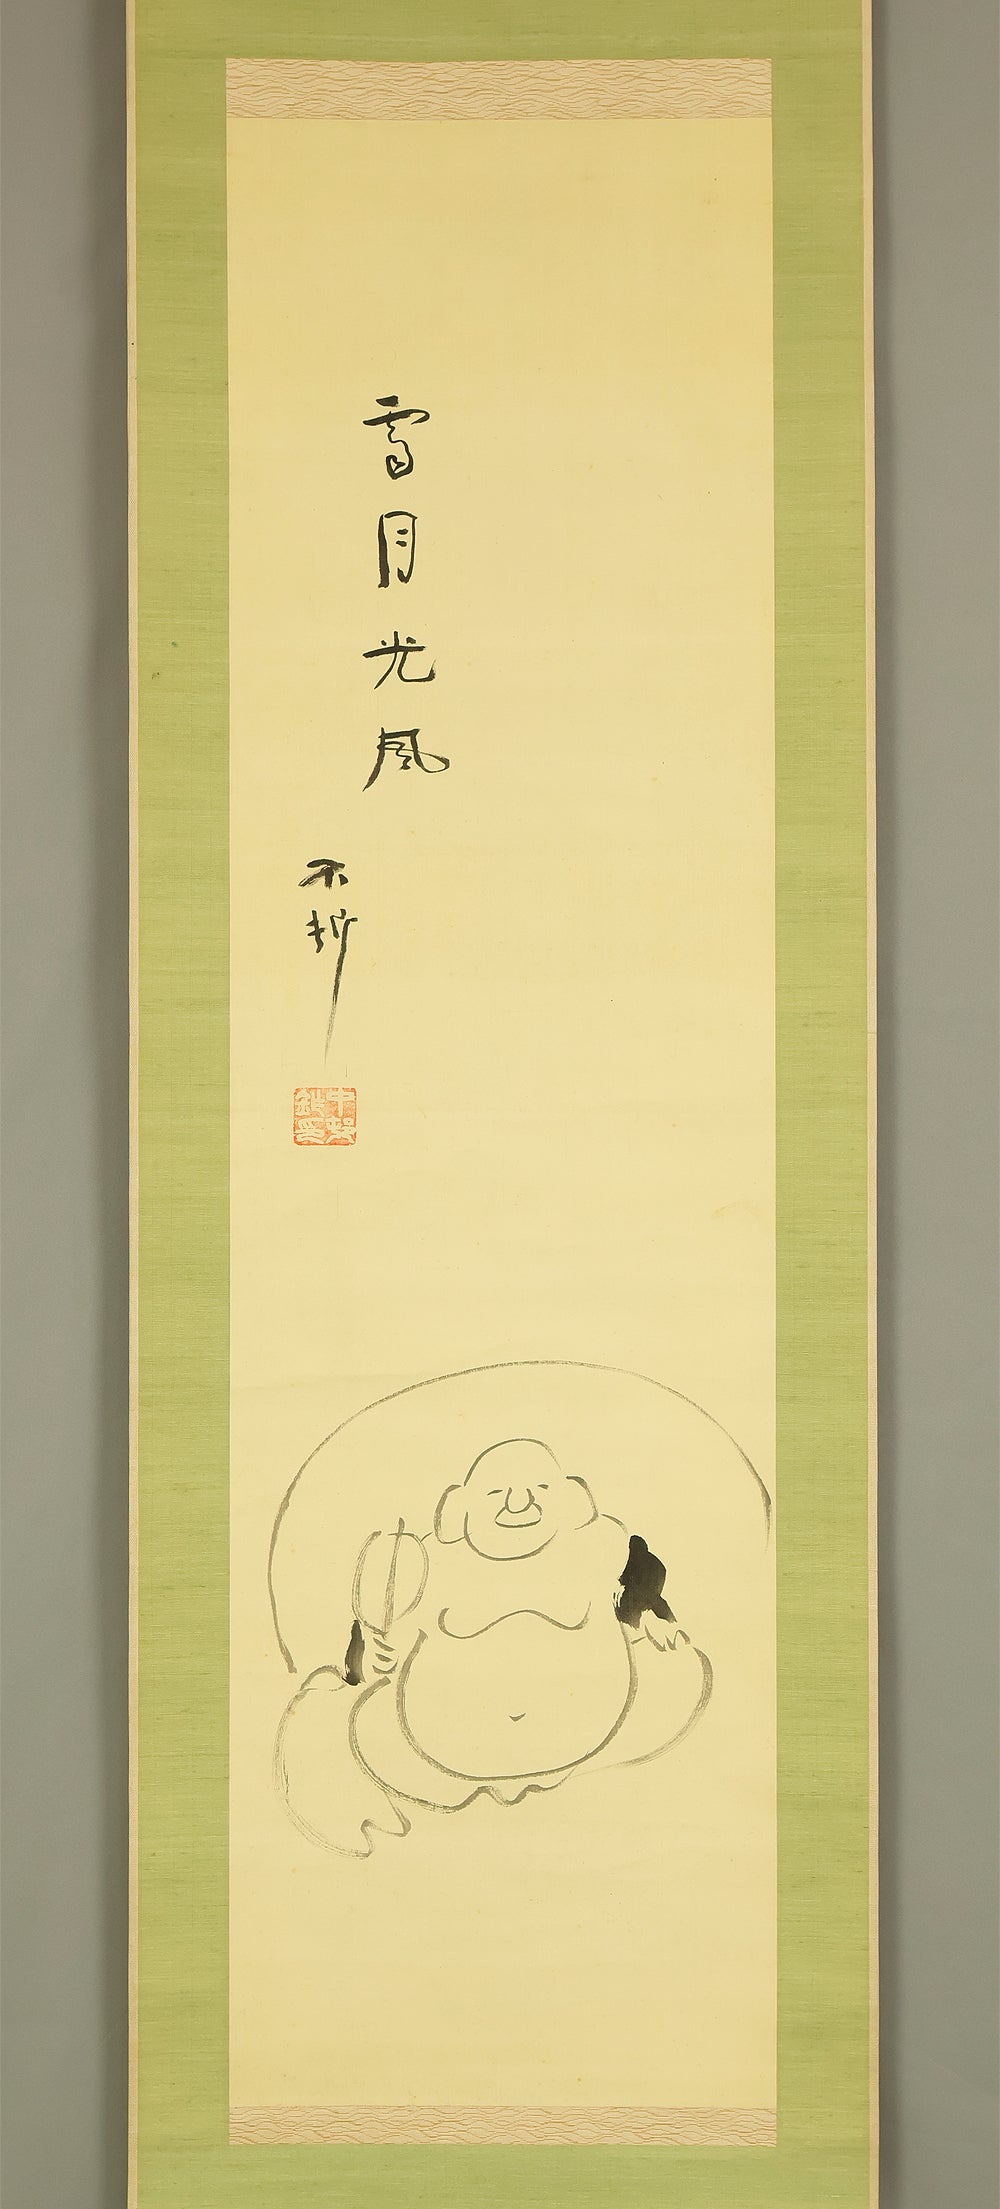 雪月光風
不折
中村鈼印